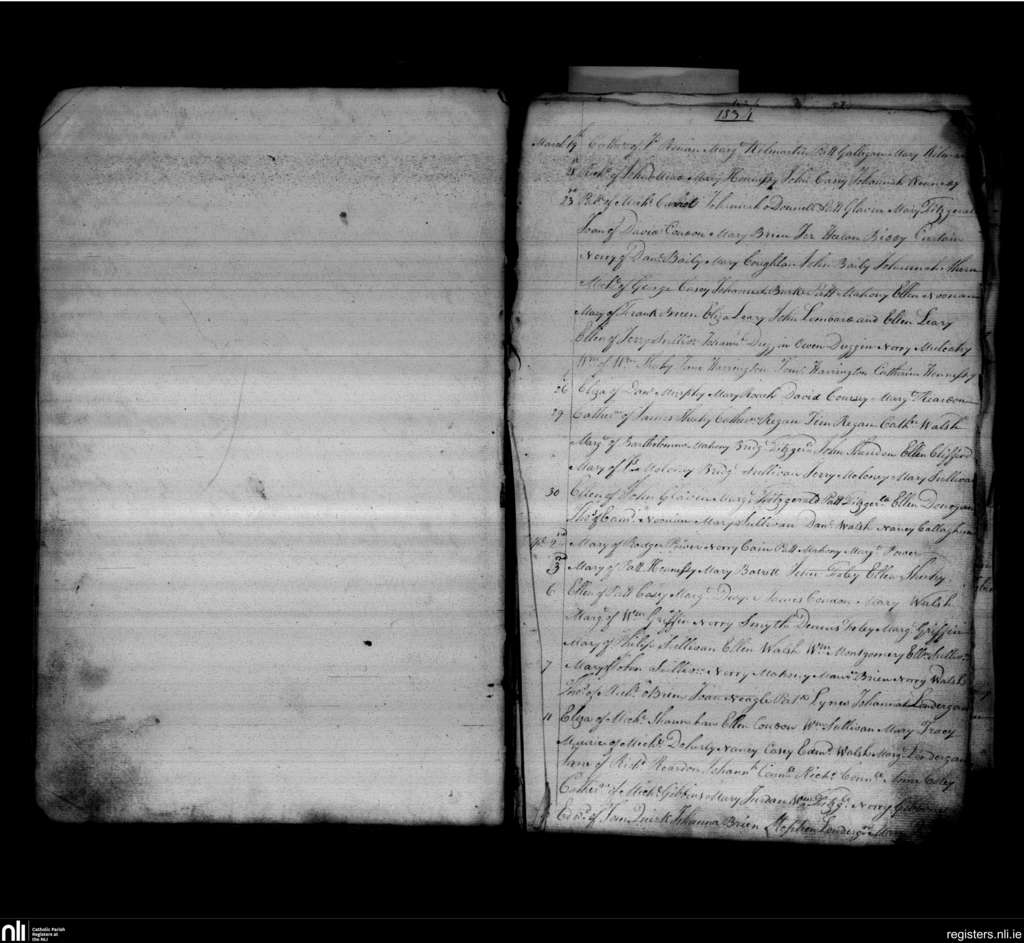 1834
March 19th Cather of Pk Ronan Margt Kilmartin Patt Galligan Mary
21 Richd of John Mary Hennessy John Casey Johannah Kennedy
23 Patt of Michl Carroll Johannah o Donnell Patt Glavin Mary Fitzgerald
Joan of David Condon Mary Brien Jer Heelan Biddy Curtain
Norry of Danl Baily Mary Coughlan John Baily Johannah Ahern
Michl of George Casey Johannah Burke Patt Mahony Ellen Noonan
Mary of Frank Breen Eliza Leary John Lombard and Ellen Leary
Ellen of Jerry Sullivn Johannh Duggin Owen Duggin Norry Mulcahy
Wm of Wm Jane Harrington Harrington Catherine Hennessy
26 Eliza of Danl Murphy Mary Roach David Coursey Margt Reardon
29 Cather of James Cather Regan Tim Regan Cathn Walsh
Margt of Bartholomew Mahony Bridgt Fitzgerd John Ellen Clifford
Mary of Pk Molony Bridgt Sullivan Jerry Moloney Mary Sullivan
30 Ellen of John Glavin Margt Fitzgerald Patt Fitzgerld Ellen Donegan
Thos of Edmd Noonan Mary Sullivan Danl Walsh Nancy Callaghan
Apl 2nd Mary of Rodger Power Norry Cain Patt Mahony Margt Power
3rd Mary of Patt Hennessy Mary Barrett Peter Foley Ellen
6 Ellen of Patt Casey Margt James Condon Mary Walsh
Margt of Wm Griffin Norry Smyth Dennis Foley Margt Griffin
Mary of Philip Sullivan Ellen Walsh Wm Montgomery Elln Sullivn
7 Mary of John Sullivn Norry Mahony Maurc Brien Norry Walsh
Thos of Michl o Brien Joan Neagle Patk Lynes Johannah Londergan
11 Eliza of Michl Shannahan Ellen Condon Wm Sullivan Mary Tracy
Maurice of Michl Doherty Nancy Casey Edmd Walsh Margt Londergan
Jane of Richd Reardon Johannh Richd Anne Coley
Cather of Michl Gibbons Mary Jordan Fitzgd Norry
Edwd of Quirk Johanna Brien Stephen Londergn Mary
nli
Catholic Parish
Registers at
the NLI
registers.nli.ie